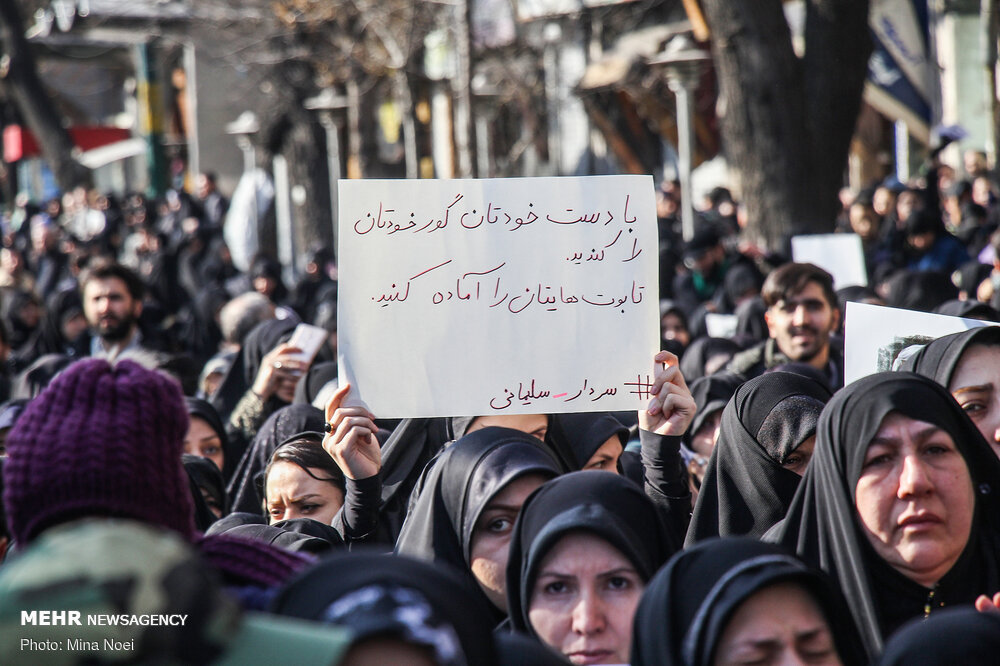 با دست خودتان گور خودتان
را کندید.
تابوت هایتان را آماده کنید.
# سردار_سلیمانی
MEHR NEWSAGENCY
Photo: Mina Noei